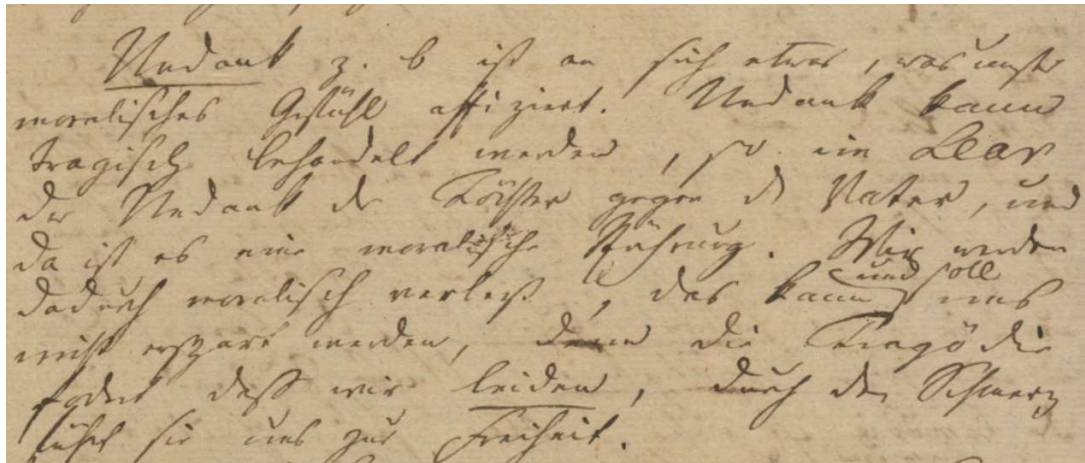 Undank z. b ist an sich etwas, was unser
moralisches Gefühl affiziert. Undank kann
tragisch behandelt werden, so im Lear
der Undank der Töchter gegen d Vater, und
da ist es eine moralische Rührung. Wir werden
dadurch moralisch verlezt, das kann und soll uns
nicht erspart werden, denn die Tragödie
fodert daß wir leiden, durch den Schmerz
führt sie uns zur Freiheit.